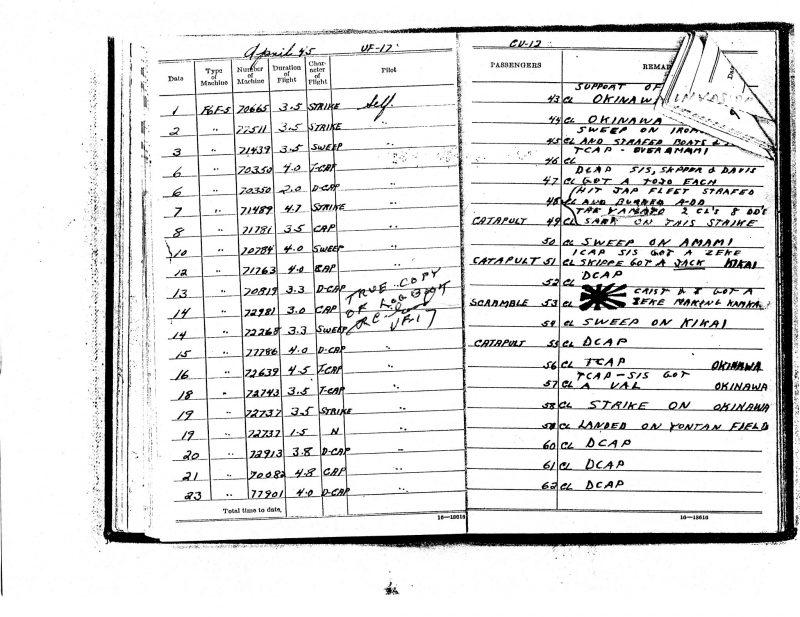 April 45 VF-17
Date Type of Machine Number of Machine Duration of Flight Character of Flight Pilot
1 F6F-5 70665 3.5 STRIKE Self
2 " 77511 3.5 STRIKE "
3 " 71439 3.5 SWEEP "
6 " 70350 4.0 T-CAP "
6 " 70350 2.0 D-CAP "
7 " 71489 4.7 STRIKE "
8 " 71781 3.5 CAP "
10 " 70784 4.0 SWEEP "
12 " 71763 4.0 CAP "
13 " 70819 3.3 D-CAP
14 " 72981 3.0 CAP
14 " 72268 3.3 SWEEP
TRUE COPY
OF LOG BOOK
VF-17
15 " 77786 4.0 D-CAP "
16 " 72639 4.5 T-CAP "
18 " 72743 3.5 T-CAP "
19 " 72737 3.5 STRIKE "
19 " 72737 1.5 N "
20 " 72913 3.8 D-CAP "
21 " 70082 4.8 CAP "
23 " 77901 4.0 D-CAP "
Total time to date,
16—18616
CV-12
PASSENGERS REMAR
SUPPORT OF
43 CL OKINAWA
44 CL OKINAWA
SWEEP ON
45 CL AND STRAFED BOATS &
TCAP - OVER AMAMI
46 CL
DCAP SIS, SKIPPER & DAVIS
47 CL GOT A TOJO EACH
HIT JAP FLEET STRAFED
48 CL AND BURNED A-DD
THE YAMATO 2 CL'S 8 DD'S
CATAPULT 49 CL SANK ON THIS STRIKE
50 CL SWEEP ON AMAMI
SIS GOT A ZEKE
CATAPULT 51 CL SKIPPE GOT A JACK KIKAI
52 CL DCAP
CRIST & I GOT A
SCRAMBLE 53 CL ZEKE MAKING
54 CL SWEEP ON KIKAI
CATAPULT 55 CL DCAP
56 CL TCAP OKINAWA
TCAP-SIS GOT
57 CL A VAL OKINAWA
58 CL STRIKE ON OKINAWA
CL LANDED ON YONTAN FIELD
60 CL DCAP
61 CL DCAP
62 CL DCAP
16—18616